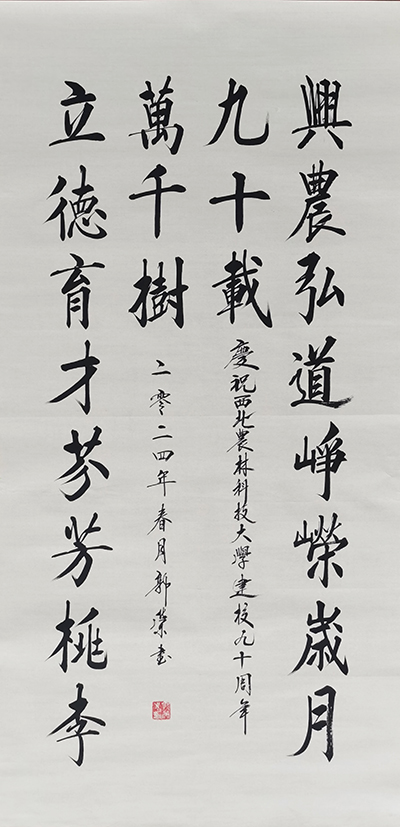 興農弘道崢嶸歲月
九十載
慶祝西北農林科技大學建校九十周年
立德育才芬芳桃李
萬千樹
二零二四年春月郭書